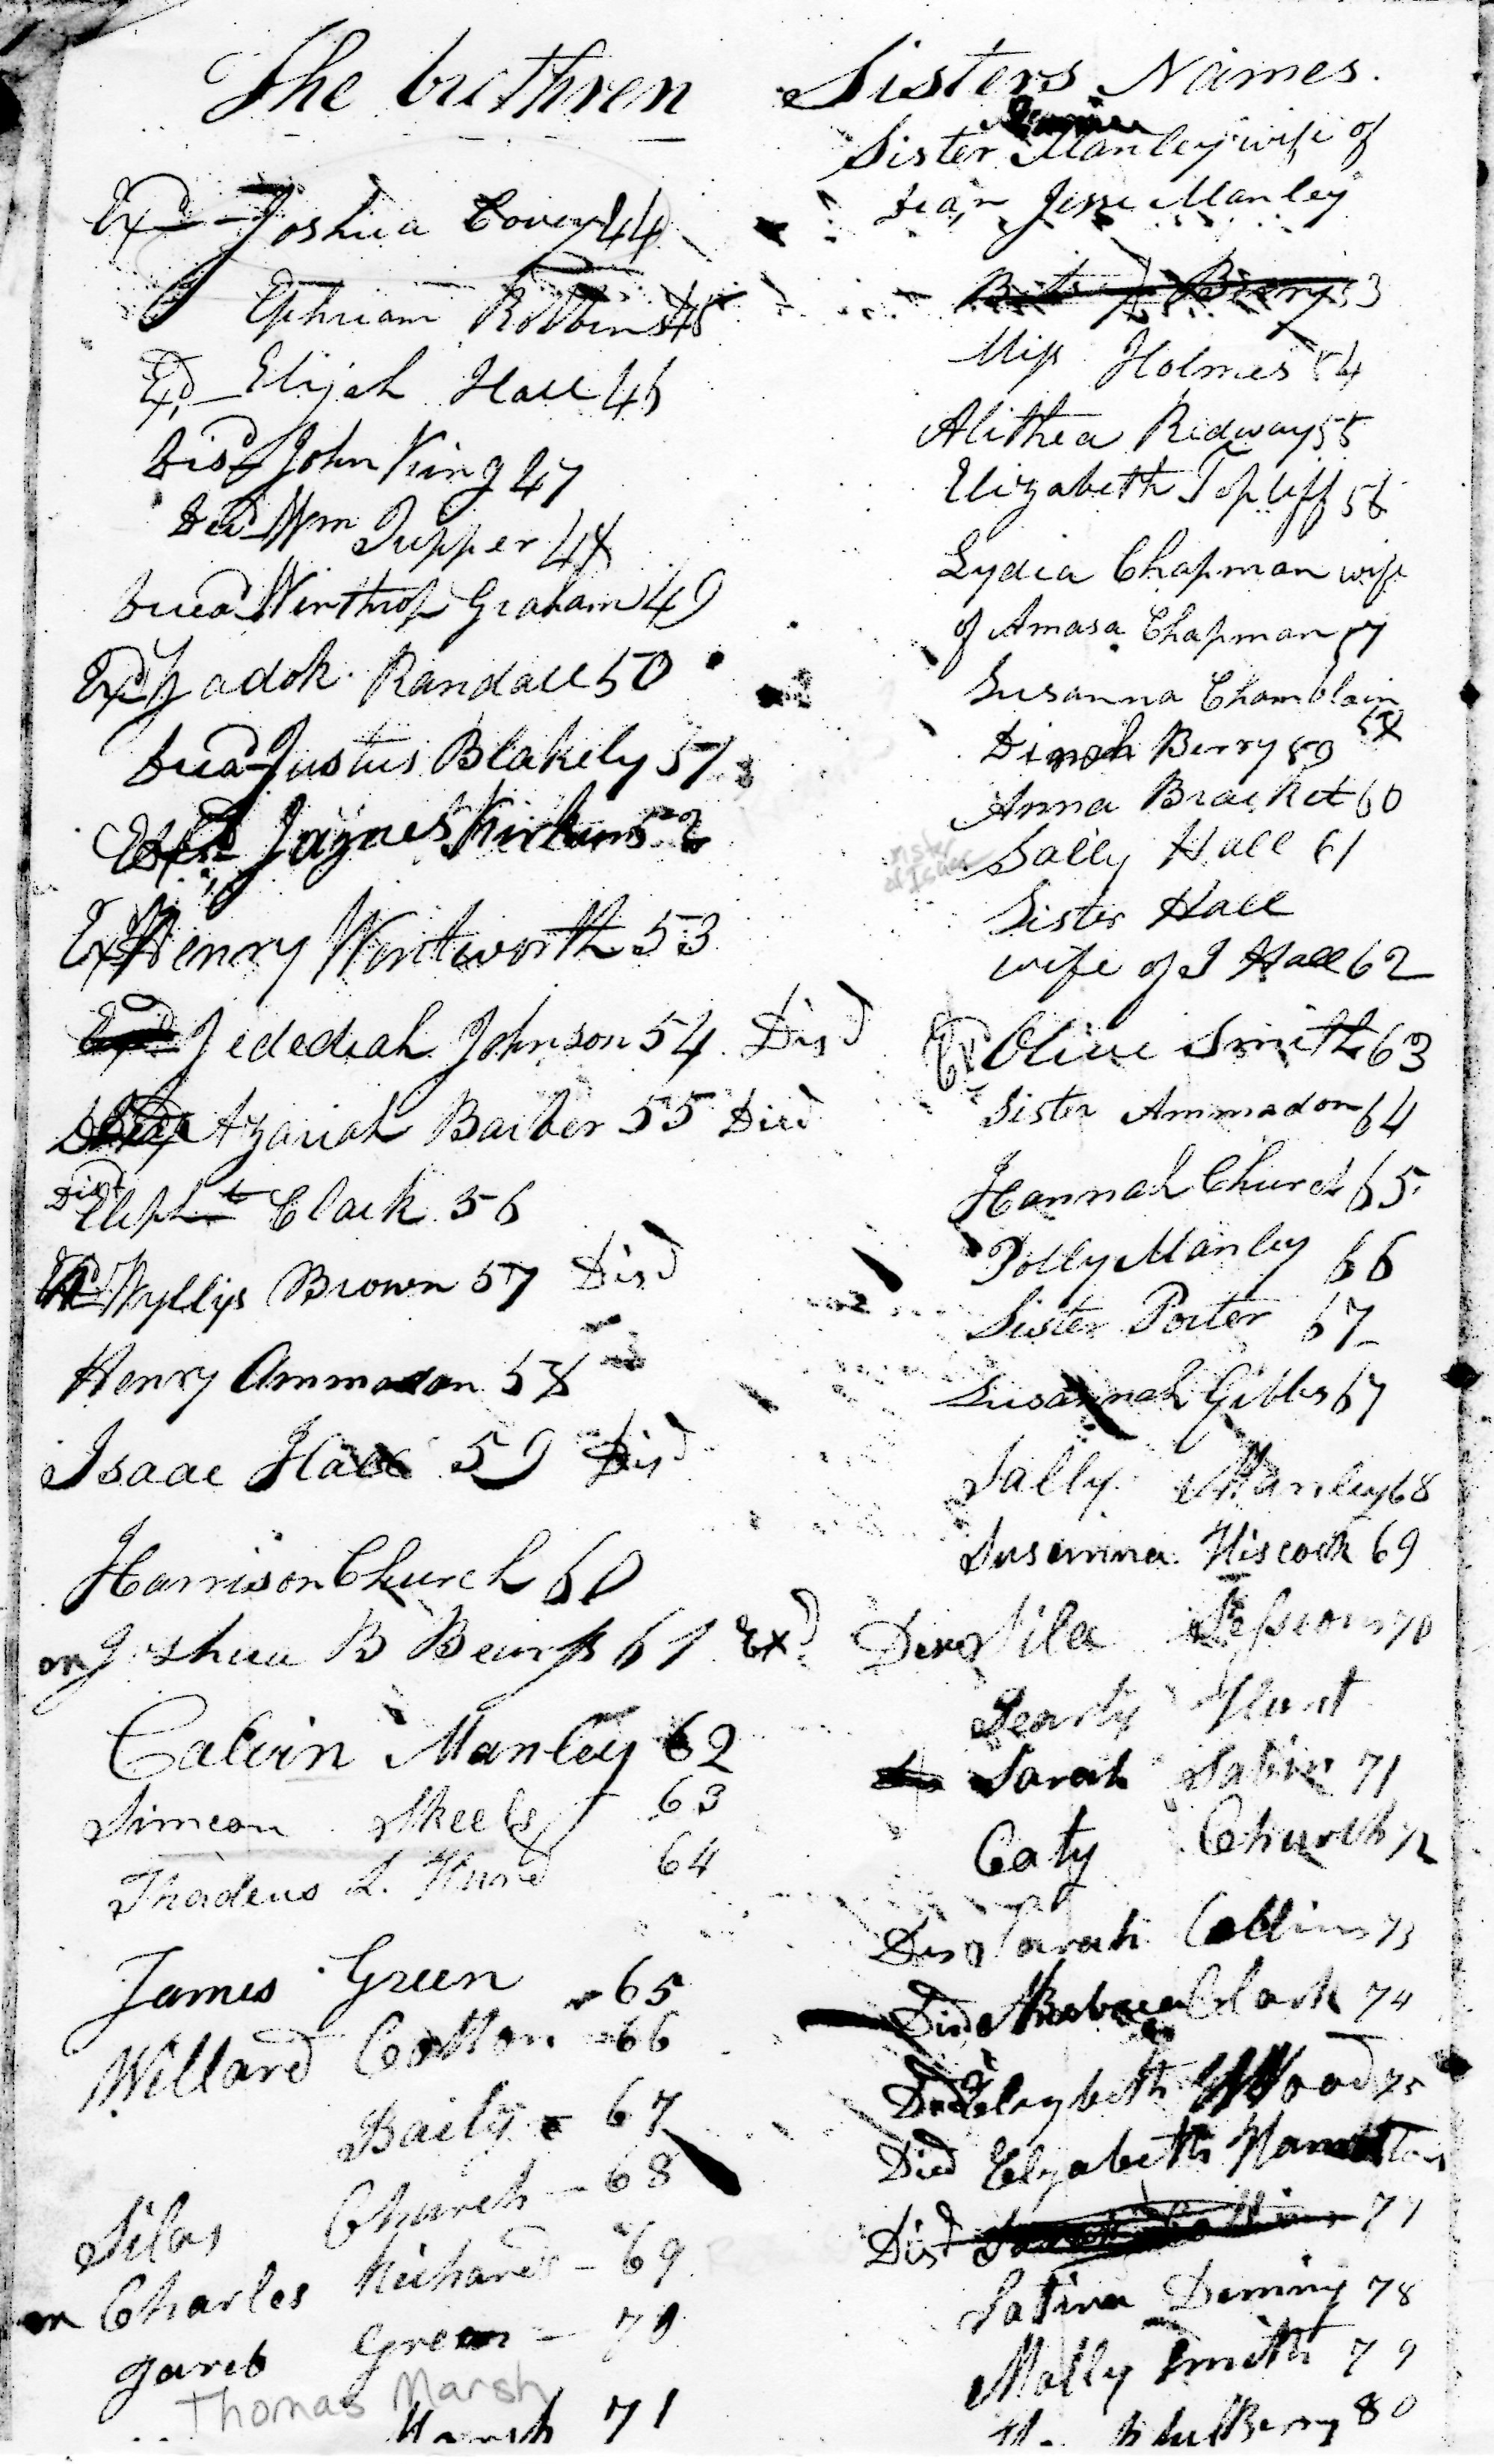 The brethren
Exd Joshua Covey 44
Ephriam Robbins 45
Exd Elijah Hall 46
Disd John King 47
Ded Wm Tupper 48
Dead Winthrop Graham 49
Exd Zadok Randall 50
Dead Justus Blakely 51
Jaynes 52
Exd Henry Wentworth 53
Jedediah Johnson 54 Disd
Azariah Barber 55 Died
Dist
Eliph-t Clark 56
Wyllys Brown 57 Disd
Henry Ammadon 58
Isaac Hall 59 Disd
Harrison Church 60
Joshua B Beuys 61 Exd
Calvin Manley 62
Simeon Skeels 63
Thadeus L. Hurd 64
James Green 65
Willard Cotton 66
Baily 67
Silas Church - 68
Charles Richards - 69
Jareb Green - 70
Thomas Marsh
Marsh 71
Sisters Names.
Sister Manley wife of
Dean Jesse Manley
Betsy Berry 53
Miss Holmes 54
Alithea Ridway 55
Elizabeth Topliff 56
Lydia Chapman wife
of Amasa Chapman 57
Susanna Chamblain
58
Dinah Berry 59
Anna Bracket 60
sister
of Isaac
Sally Hall 61
Sister Hall
wife of I Hall 62
Ex Olive Smith 63
Sister Ammadon 64
Hannah Church 65
Polly Manley 66
Sister Porter 67
Susannah Gibbs 67
Sally Manley 68
Susanna Hiscock 69
Sila Sessions 70
Hunt
Sarah Sabin 71
Caty Church 72
Sarah Collins 73
Clark 74
Wood 75
Died Elyzabeth
Dist 77
Satina Deming 78
Molly Smith 79
Berry 80